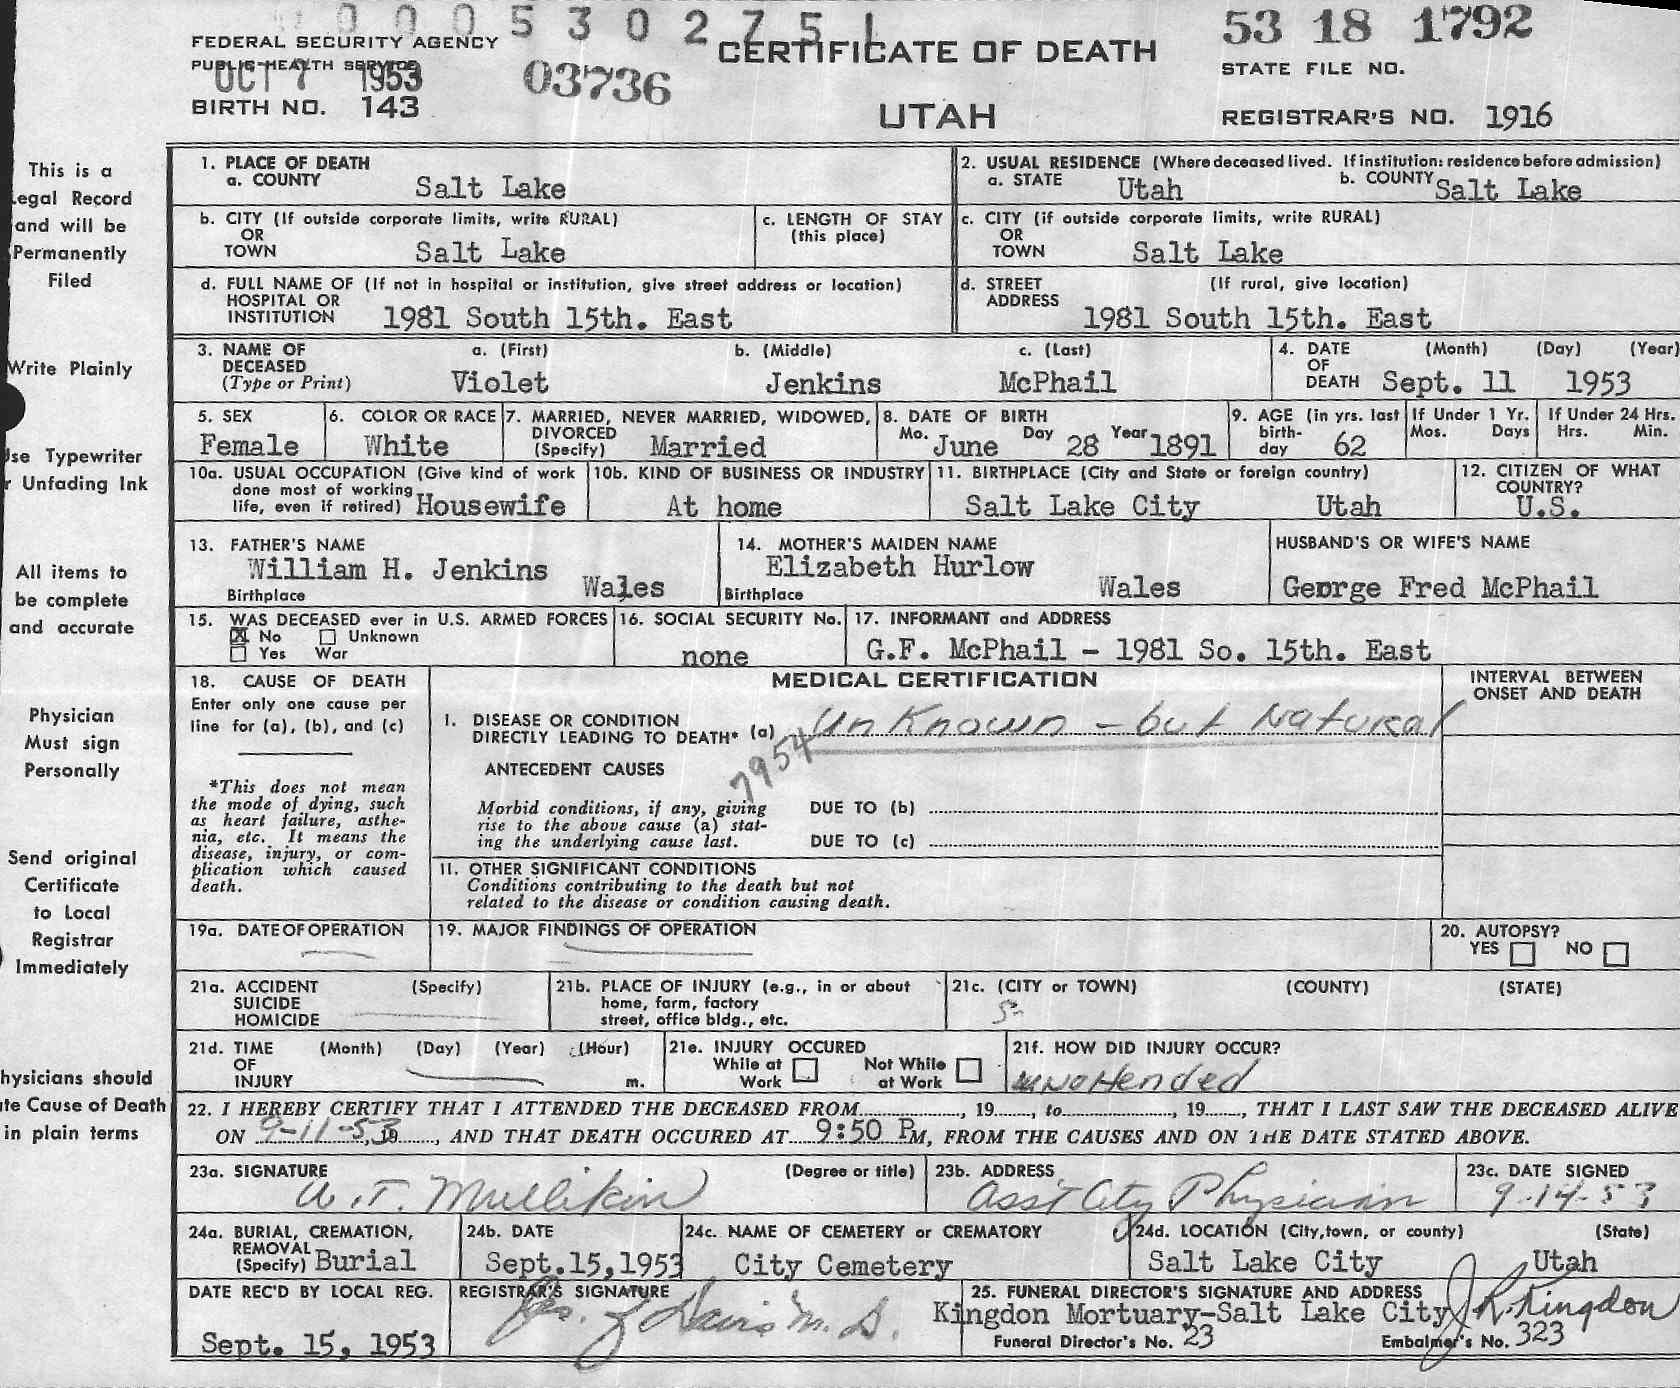 0005302751
53 18 1792
FEDERAL SECURITY AGENCY
CERTIFICATE OF DEATH
PUBLIC HEALTH SERVICE
OCT 7 1953
03736
STATE FILE NO.
BIRTH NO. 143
UTAH
REGISTRAR'S NO. 1916
This is a
Legal Record
and will be
Permanently
Filed
Write Plainly
Use Typewriter
or Unfading Ink
All items to
be complete
and accurate
Physician
Must sign
Personally
Send original
Certificate
to Local
Registrar
Immediately
Physicians should
te Cause of Death
in plain terms
1. PLACE OF DEATH
a. COUNTY Salt Lake
2. USUAL RESIDENCE (Where deceased lived. If institution: residence before admission)
a. STATE Utah b. COUNTY Salt Lake
b. CITY (If outside corporate limits, write RURAL)
OR
TOWN Salt Lake
c. LENGTH OF STAY
(this place)
c. CITY (if outside corporate limits, write RURAL)
OR
TOWN Salt Lake
d. FULL NAME OF (If not in hospital or institution, give street address or location)
HOSPITAL OR
INSTITUTION 1981 South 15th. East
d. STREET (If rural, give location)
ADDRESS
1981 South 15th. East
3. NAME OF a. (First) b. (Middle) c. (Last)
DECEASED
(Type or Print) Violet Jenkins McPhail
4. DATE (Month) (Day) (Year)
OF
DEATH Sept. 11 1953
5. SEX
Female
6. COLOR OR RACE
White
7. MARRIED, NEVER MARRIED, WIDOWED,
DIVORCED
(Specify) Married
8. DATE OF BIRTH
Mo. June Day 28 Year 1891
9. AGE (in yrs. last
birth-
day 62
If Under 1 Yr.
Mos. Days
If Under 24 Hrs.
Hrs. Min.
10a. USUAL OCCUPATION (Give kind of work
done most of working
life, even if retired) Housewife
10b. KIND OF BUSINESS OR INDUSTRY
At home
11. BIRTHPLACE (City and State or foreign country)
Salt Lake City Utah
12. CITIZEN OF WHAT
COUNTRY?
U.S.
13. FATHER'S NAME
William H. Jenkins
Birthplace Wales
14. MOTHER'S MAIDEN NAME
Elizabeth Hurlow
Birthplace Wales
HUSBAND'S OR WIFE'S NAME
George Fred McPhail
15. WAS DECEASED ever in U.S. ARMED FORCES
X No Unknown
Yes War
16. SOCIAL SECURITY No.
none
17. INFORMANT and ADDRESS
G.F. McPhail - 1981 So. 15th. East
18. CAUSE OF DEATH
Enter only one cause per
line for (a), (b), and (c)
*This does not mean
the mode of dying, such
as heart failure, asthe-
nia, etc. It means the
disease, injury, or com-
plication which caused
death.
MEDICAL CERTIFICATION
INTERVAL BETWEEN
ONSET AND DEATH
I. DISEASE OR CONDITION
DIRECTLY LEADING TO DEATH* (a) Unknown - but Natural
7954
ANTECEDENT CAUSES
Morbid conditions, if any, giving DUE TO (b)
rise to the above cause (a) stat-
ing the underlying cause last. DUE TO (c)
II. OTHER SIGNIFICANT CONDITIONS
Conditions contributing to the death but not
related to the disease or condition causing death.
19a. DATE OF OPERATION
19. MAJOR FINDINGS OF OPERATION
20. AUTOPSY?
YES NO
21a. ACCIDENT (Specify)
SUICIDE
HOMICIDE
21b. PLACE OF INJURY (e.g., in or about
home, farm, factory
street, office bldg., etc.
21c. (CITY or TOWN) (COUNTY) (STATE)
21d. TIME (Month) (Day) (Year) (Hour)
OF
INJURY m.
21e. INJURY OCCURED
While at Not While
Work at Work
21f. HOW DID INJURY OCCUR?
unattended
22. I HEREBY CERTIFY THAT I ATTENDED THE DECEASED FROM , 19 , to , 19 , THAT I LAST SAW THE DECEASED ALIVE
ON 9-11-53 19 , AND THAT DEATH OCCURED AT 9:50 PM, FROM THE CAUSES AND ON THE DATE STATED ABOVE.
23a. SIGNATURE (Degree or title)
W. T. Mullikin
23b. ADDRESS
Ass't City Physician
23c. DATE SIGNED
9-14-53
24a. BURIAL, CREMATION,
REMOVAL
(Specify) Burial
24b. DATE
Sept.15,1953
24c. NAME OF CEMETERY or CREMATORY
City Cemetery
24d. LOCATION (City, town, or county) (State)
Salt Lake City Utah
DATE REC'D BY LOCAL REG.
Sept. 15, 1953
REGISTRAR'S SIGNATURE
Davis M. D.
25. FUNERAL DIRECTOR'S SIGNATURE AND ADDRESS
Kingdon Mortuary-Salt Lake City J.R. Kingdon
Funeral Director's No. 23 Embalmer's No. 323